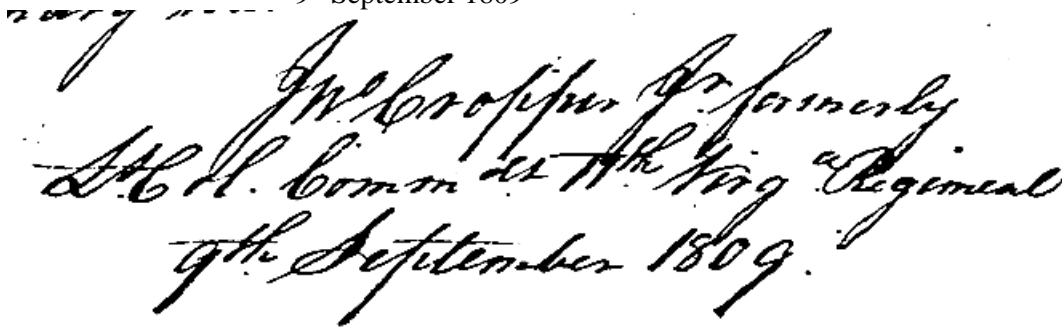 9 September 1809
Jnº Cropper Jr. formerly
Lt Col. Commdt 11th Virga Regiment
9th September 1809.